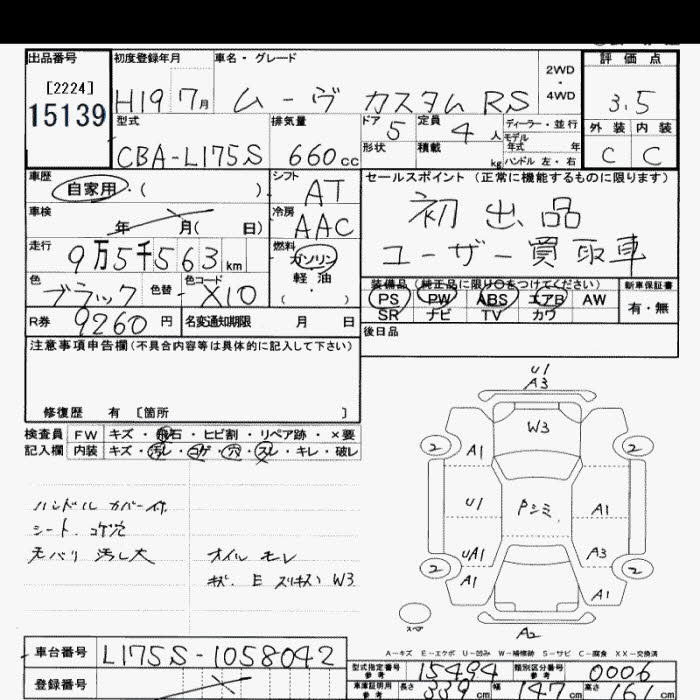 出品番号 初度登録年月 車名・グレード 2WD・4WD 評価点
[2224]
15139 H19 7月 ムーヴ カスタム RS 3.5
型式 排気量 ドア 5 定員 4人 ディーラー・並行 外装 内装
CBA-L175S 660cc 形状 積載 kg モデル年式 年 C C
ハンドル 左・右
車歴 シフト セールスポイント (正常に機能するものに限ります)
自家用・( ) AT 初出品
車検 年 月( 日) 冷房 AAC ユーザー買取車
走行 9万5千563km 燃料 ガソリン
色 ブラック 色替 色コード X10 軽油 ( )
装備品 (純正品に限り○をつけてください) 新車保証書
PS PW ABS エアB AW 有・無
SR ナビ TV カワ
R券 9260円 名変通知期限 月 日 後日品
注意事項申告欄(不具合内容等は具体的に記入して下さい)
修復歴 有 [箇所 ]
検査員 FW キズ・飛石・ヒビ割・リペア跡・×要
記入欄 内装 キズ・汚レ・コゲ・穴・スレ・キレ・破レ
ハンドル カバー付
シート.コゲ穴
モバリ 汚し大 オイル モレ
W3
U1
A3
W3
2 2
A1
U1 Pシミ. A1
UA1 A3
2 2
A1 A1
スペア
A2
A-キズ E-エクボ U-凹み W-補修跡 S-サビ C-腐食 XX-交換済
車台番号 L175S-1058042
型式指定番号 参考 15494 類別区分番号 参考 0006
登録番号
車庫証明用 参考 長さ 339cm 幅 147cm 高さ cm